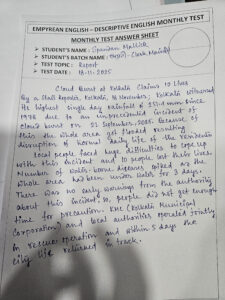 EMPYREAN ENGLISH – DESCRIPTIVE ENGLISH MONTHLY TEST
MONTHLY TEST ANSWER SHEET
STUDENT'S NAME : Spandan Mallick
STUDENT'S BATCH NAME : Clerk Mains
TEST TOPIC : Report
TEST DATE : 18-11-2025
Cloud Burst at Kolkata Claims 10 Lives
By a Staff Reporter, Kolkata, 18 November; Kolkata witnessed
its highest single day rainfall of mm since
1978 due to an unprecedented incident of
cloud burst on 23 September, 2025. Because of
this the whole area got flooded resulting
disruption of normal daily life of the residents.
Local people faced huge difficulties to cope up
with this incident and 10 people lost their lives.
Number of water-borne diseases spiked as the
whole area had been under water for 3 days.
There was no early warnings from the authority
about this incident so, people did not get enough
time for precaution. KMC (Kolkata Municipal
Corporation) and local authorities operated jointly
in rescue operation and within 5 days the
city life returned in track.